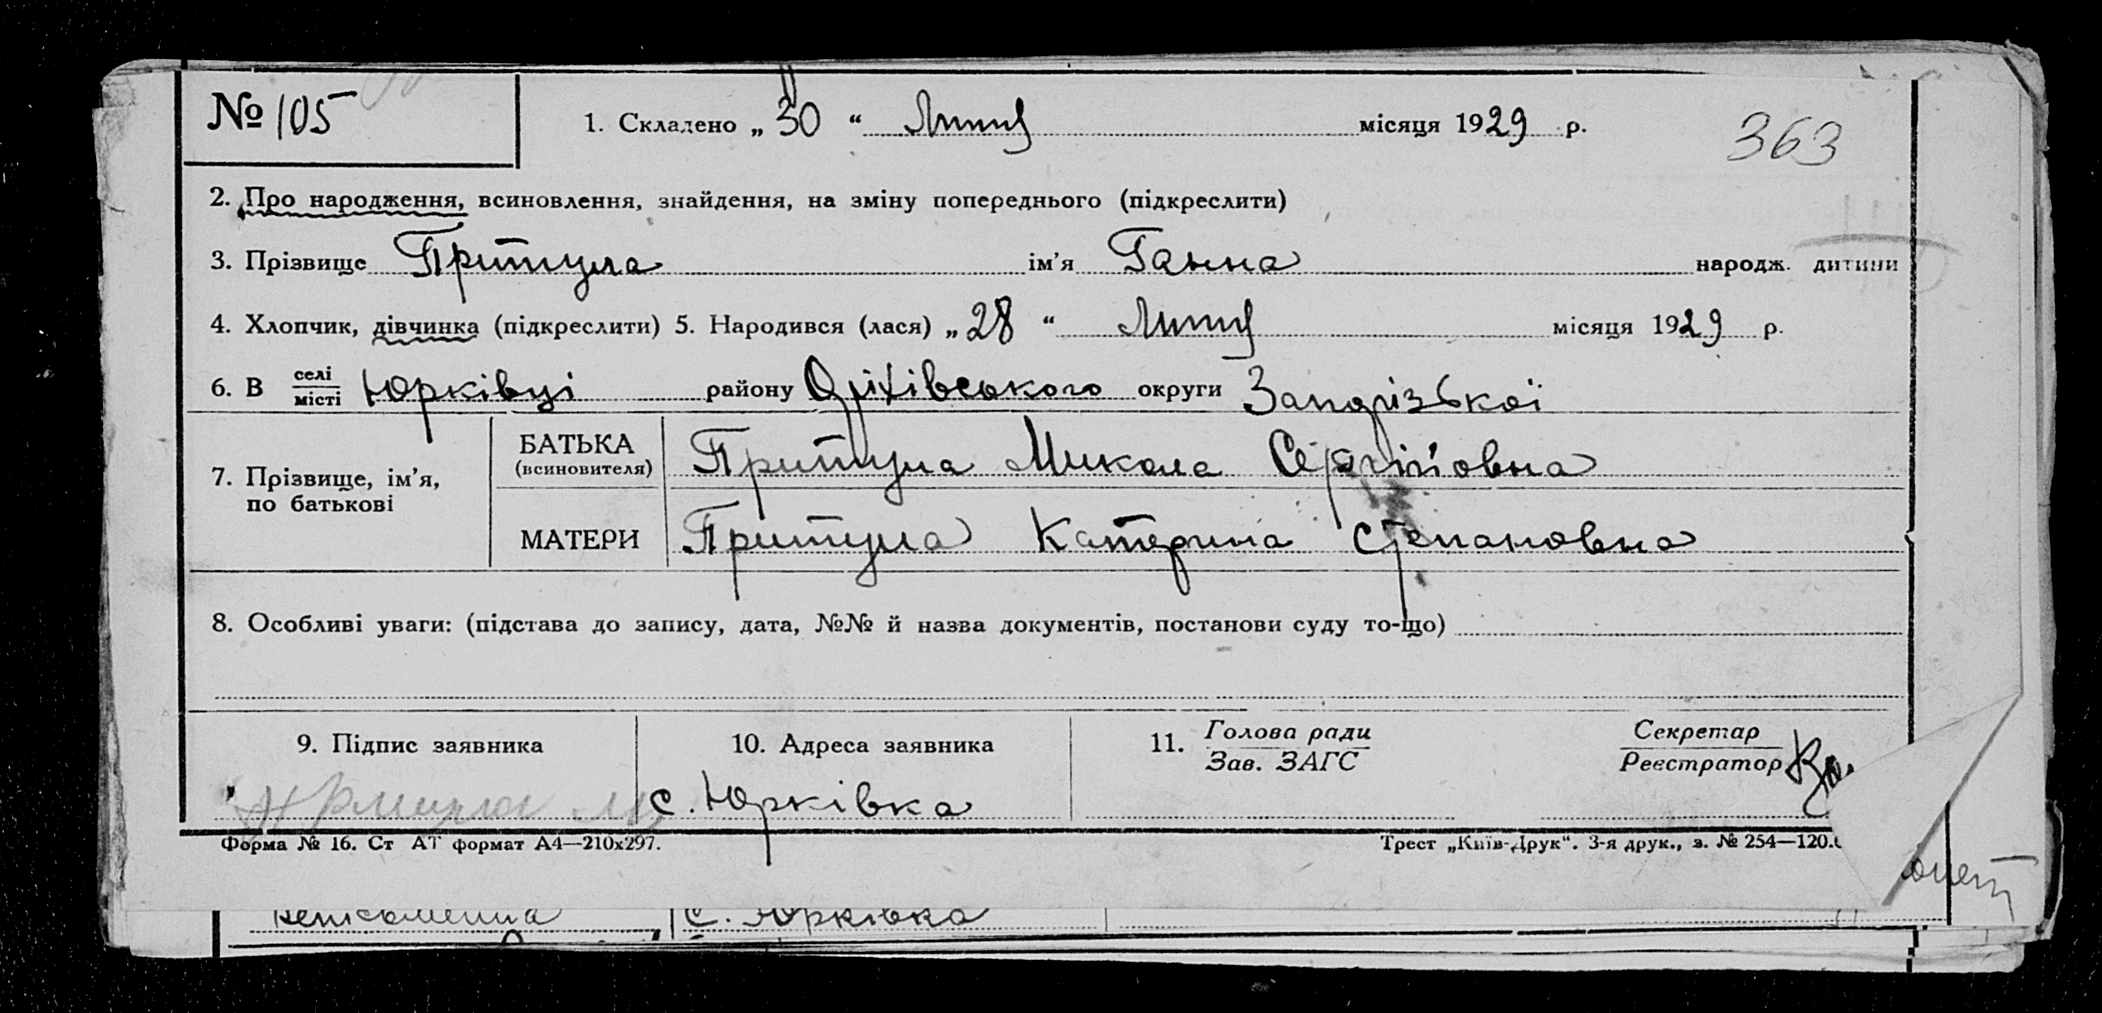 № 105
1. Складено „ 30 “ Липня місяця 1929 р.
363
2. Про народження, всиновлення, знайдення, на зміну попереднього (підкреслити)
3. Прізвище Притула ім'я Ганна народж. дитини
4. Хлопчик, дівчинка (підкреслити) 5. Народився (лася) „ 28 “ Липня місяця 1929 р.
6. В селі місті Юрківці району Оріхівського округи Запорізької
7. Прізвище, ім'я, по батькові
БАТЬКА (всиновителя) Притула Микола Сергіївна
МАТЕРИ Притула Катерина Степановна
8. Особливі уваги: (підстава до запису, дата, №№ й назва документів, постанови суду то-що)
9. Підпис заявника 10. Адреса заявника 11. Голова ради Зав. ЗАГС Секретар Реєстратор
с. Юрківка
Форма № 16. Ст АТ формат А4—210х297. Трест „Київ-Друк“. 3-я друк., з. № 254—120.
с. Юрківка